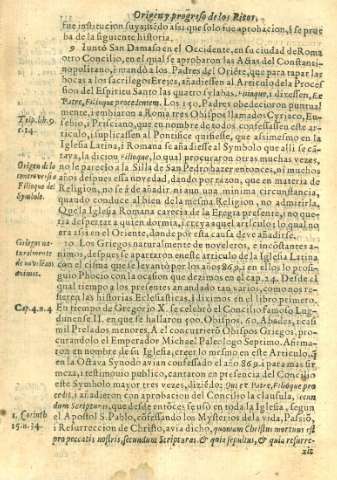 Origen y progreso de los Ritos.
fue institucion suya, sino assi que solo fue aprobacion, i se prue
ba de la siguiente historia.
9 Juntò San Damaso en el Occidente, en su ciudad de Roma
otro Concilio, en el qual se aprobaron las Actas del Constanti-
nopolitano, i mandò a los Padres del Oriẽte, que para tapar las
bocas a los sacrilegos Ereges, añadiessen al Articulo de la Proces
sion del Espiritu Santo las quatro sylabas, Filioque, i dixessen, Ex
Patre, Filioque procedentem. Los 150. Padres obedecieron puntual
mente, i embiaron a Roma tres Obispos llamados Cyriaco, Eu-
sebio, i Prisciano, que en nombre de todos confessassen este arti
culo, i suplicassen al Pontifice quisiesse, que assimesmo en la
Iglesia Latina, i Romana se añadiesse al Symbolo que alli se cã-
tava, la dicion Filioque, lo qual procuraron otras muchas vezes,
no le pareciò a la Silla de San Pedro hazer entonces, ni muchos
años despues essa novedad, dando por razon, que en materia de
Religion, no se à de añadir, ni aun una minima circunstancia,
quando conduce al bien de la mesma Religion, no admitirla.
Que la Iglesia Romana carecia de la Eregia presente, i no que-
ria despertar a quien dormia, i creya aquel articulo; lo qual no
era assi en el Oriente, donde por esta causa devio añadirse.
Trip. lib. 9
c. 14.
Origen de la
controversia
Filioque del
Symbolo.
10. Los Griegos naturalmente de noveleros, e incõstantes a-
nimos, despues se apartaron en este articulo de la Iglesia Latina
con el cisma que se levantò por los años 869. i en ellos lo prosi-
guio Phocio con la ocasion que dezimos en el cap. 24. Desde el
qual tiempo a los presentes an andado tan varios, como nos re-
fieren las historias Eclesiasticas, i diximos en el libro primero.
Griegos na-
turalmente
de noveleros
animos.
En tiempo de Gregorio X. se celebrò el Concilio famoso Lug-
dunense II. en que se hallaron 500. Obispos, 60. Abades, i casi
mil Prelados menores. A el concurrierõ Obispos Griegos, pro-
curandolo el Emperador Michael Paleologo Septimo. Añima-
ron en nombre de su Iglesia, creer lo mesmo en este Articulo, q̃
en la Octava Synodo avian confessado el año 869. i para mas fir
meza, i testimonio publico, cantaron en presencia del Concilio
este Symbolo mayor tres vezes, diziẽdo: Qui ex Patre, Filioque pro
cedit, i añadieron con aprobacion del Concilio la clausula, secun
dum Scripturas, que desde entõces se usò en toda la Iglesia, segun
el Apostol S. Pablo, cõfessando los Mysterios de la vida, Passiõ,
i Resurreccion de Christo, avia dicho, quoniam Christus mortuus est
pro peccatis nostris, secundum Scripturas & quia sepultus, & quia resurre-
xit
Cap. 4. n. 4
1. Corinth
15. n. 14.